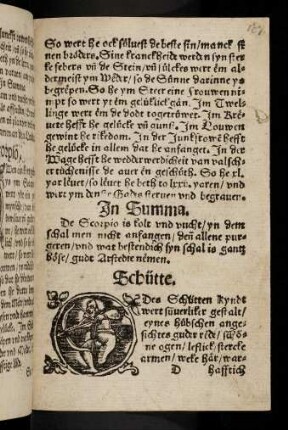 So wert he ock sülvest de beste sin/manck sinen
bröders. Sine kranckheide werden syn stercke
febers vñ de Stein/vñ sülckes wert em aldermeist
ym Wedr/so de Sünne darinne ys
begrepen. So he ym Steer eine frouwen nimpt
so wert yt em gelücklick gan. Im Twellinge
wert em de dodt togetröwet. Im Kreuete
hefft he gelücke vñ gunst. Im Louwen
gewint he rikedom. In der Junckfrowē hefft
he gelücke in allem dat he anfanget. In der
Wage hefft he wedderwerdicheit van valscher
tüchenisse de auer en geschüth. So he xl.
yar leuet/so leuet he beth to lxxx. yaren/vnd
wert ym denste Gades steruen vnd begrauen.
In Summa.
De Scorpio is kolt vnd vucht/yn dem
schal men nicht anfangen/den allene purgeren/vnd
wat bestendich syn schal is gantz
böse/gude Arstedie nemen.
Schütte.
Des Schütten Kyndt
wert süuerliker gestalt/
eynes hübschen angesichtes
guder rede/schöne
ogen/lefflick/stercke
armen/weke här/war-
D hafftich